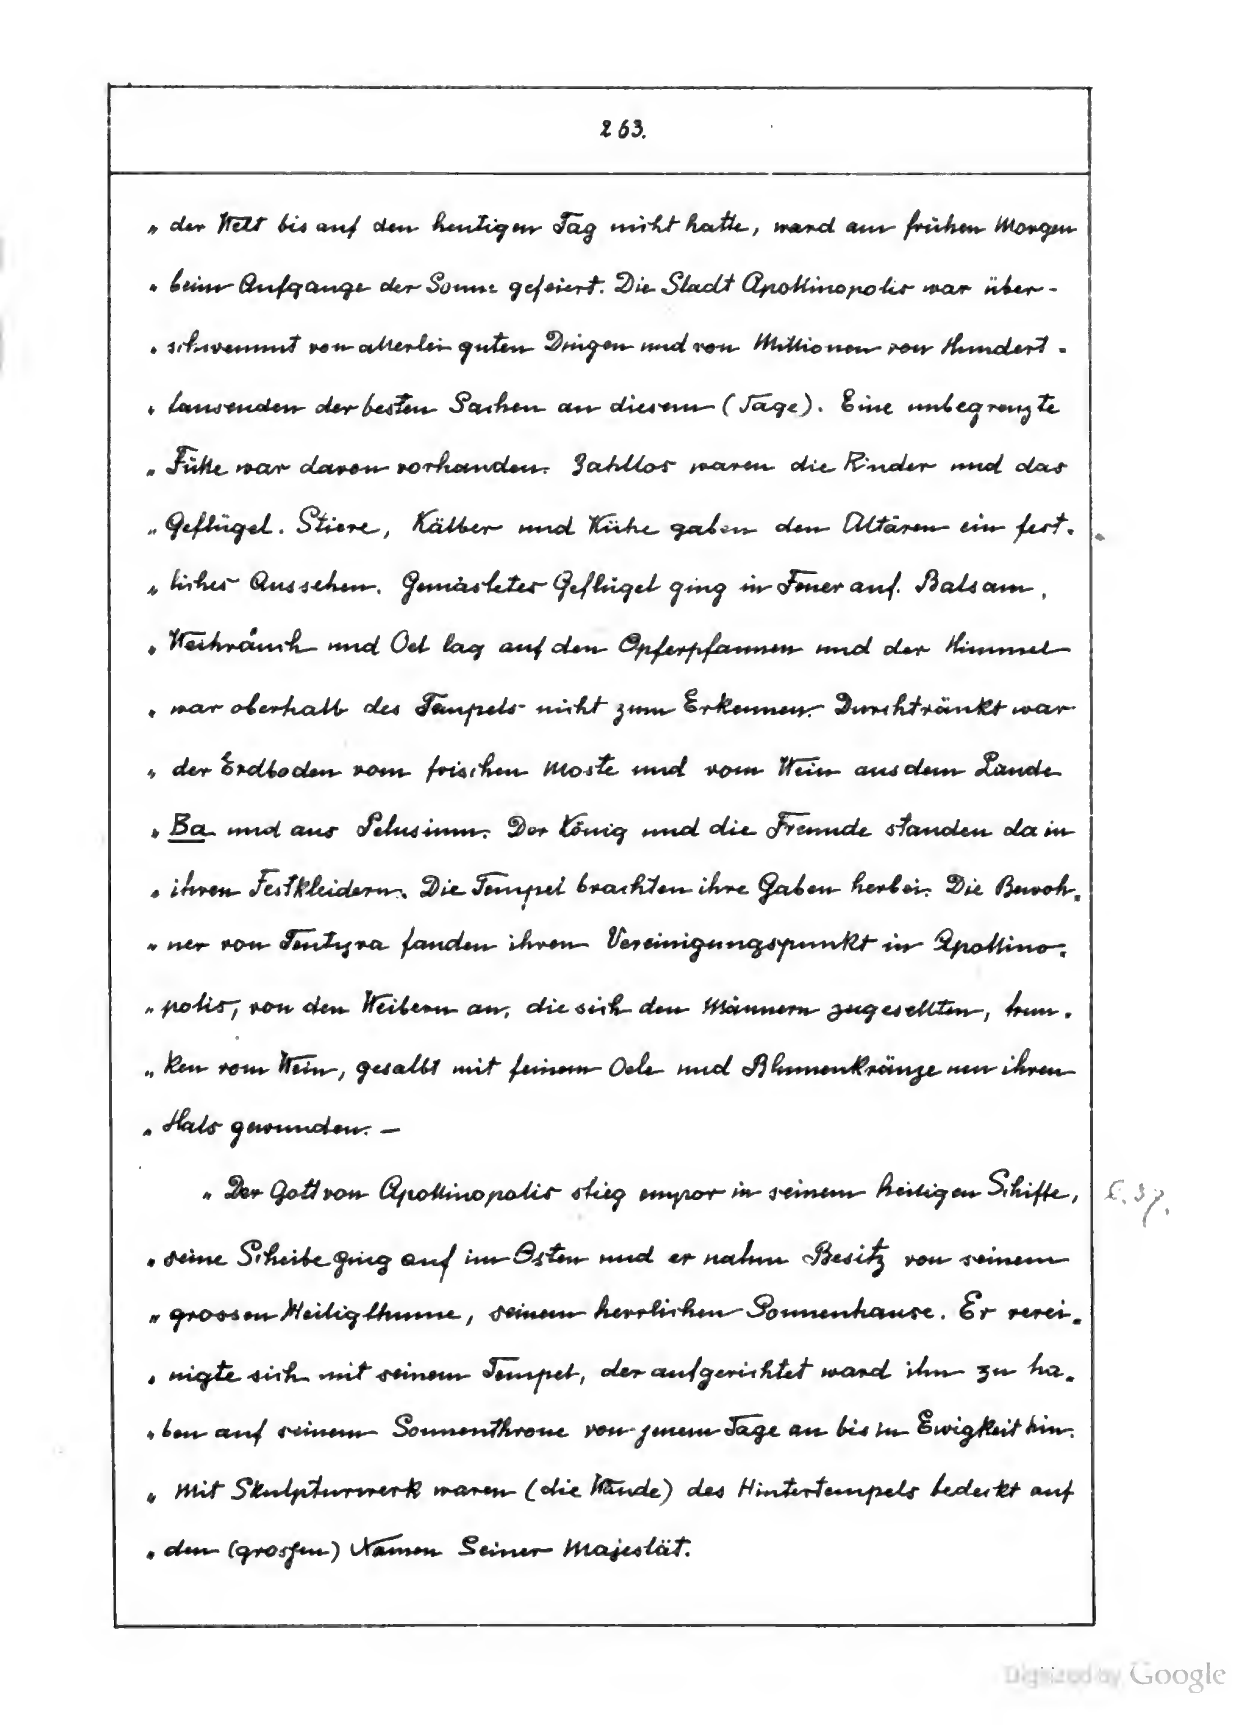 263.
„ der Welt bis auf den heutigen Tag nicht hatte, ward am frühen Morgen
„ beim Aufgange der Sonne gefeiert. Die Stadt Apollinopolis war über-
„ schwemmt von allerlei guten Dingen und von Millionen von Hundert-
„ tausenden der besten Sachen an diesem (Tage). Eine unbegrenzte
„ Fülle war davon vorhanden. Zahllos waren die Rinder und das
„ Geflügel. Stiere, Kälber und Kühe gaben den Altären ein fest-
„ liches Aussehen. Gemästetes Geflügel ging in Feuer auf. Balsam,
„ Weihrauch und Oel lag auf den Opferpfannen und der Himmel
„ war oberhalb des Tempels nicht zum Erkennen. Durchtränkt war
„ der Erdboden vom frischen Moste und vom Wein aus dem Lande
„ Ba und aus Pelusium. Der König und die Freunde standen da in
„ ihren Festkleidern. Die Tempel brachten ihre Gaben herbei. Die Bewoh-
„ ner von Tentyra fanden ihren Vereinigungspunkt in Apollino-
„ polis, von den Weibern an, die sich den Männern zugesellten, trun-
„ ken vom Wein, gesalbt mit feinem Oele und Blumenkränze um ihren
„ Hals gewunden. —
„ Der Gott von Apollinopolis stieg empor in seinem heiligen Schiffe,
„ seine Scheibe ging auf im Osten und er nahm Besitz von seinem
„ grossen Heiligthume, seinem herrlichen Sonnenhause. Er verei-
„ nigte sich mit seinem Tempel, der aufgerichtet ward ihm zu ha-
„ ben auf seinem Sonnenthrone von jenem Tage an bis in Ewigkeit hin.
„ Mit Skulpturwerk waren (die Wände) des Hintertempels bedeckt auf
„ den (grossen) Namen Seiner Majestät.
Digitized by Google